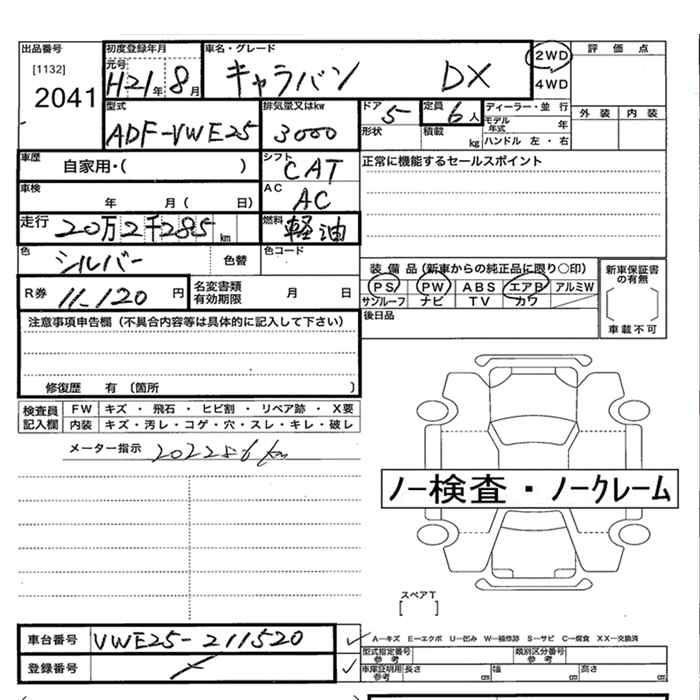 出品番号 初度登録年月 車名・グレード 2WD 評価点
[1132] 元号 H21年 8月 キャラバン DX 4WD
2041 型式 排気量又はkw ドア 5 定員 6人 ディーラー・並行 外装 内装
ADF-VWE25 3000 形状 積載 kg モデル年式 年
ハンドル 左・右
車歴 自家用・( ) シフト CAT 正常に機能するセールスポイント
車検 年 月( 日) AC AC
走行 20万2千285km 燃料 軽油
色 シルバー 色替 色コード
装備品(新車からの純正品に限り〇印) 新車保証書の有無
R券 11,120円 名変書類有効期限 月 日 PS PW ABS エアB アルミW
サンルーフ ナビ TV カワ
注意事項申告欄(不具合内容等は具体的に記入して下さい) 後日品 車載不可
修復歴 有 (箇所 )
検査員 FW キズ・飛石・ヒビ割・リペア跡・X要
記入欄 内装 キズ・汚レ・コゲ・穴・スレ・キレ・破レ
メーター指示 202286km
ノー検査・ノークレーム
スペアT
[ ]
車台番号 VWE25-211520 A―キズ E―エクボ U―凹み W―補修跡 S―サビ C―腐食 XX―交換済
型式指定番号 参考 類別区分番号 参考
登録番号 車庫証明用 参考 長さ cm 幅 cm 高さ cm